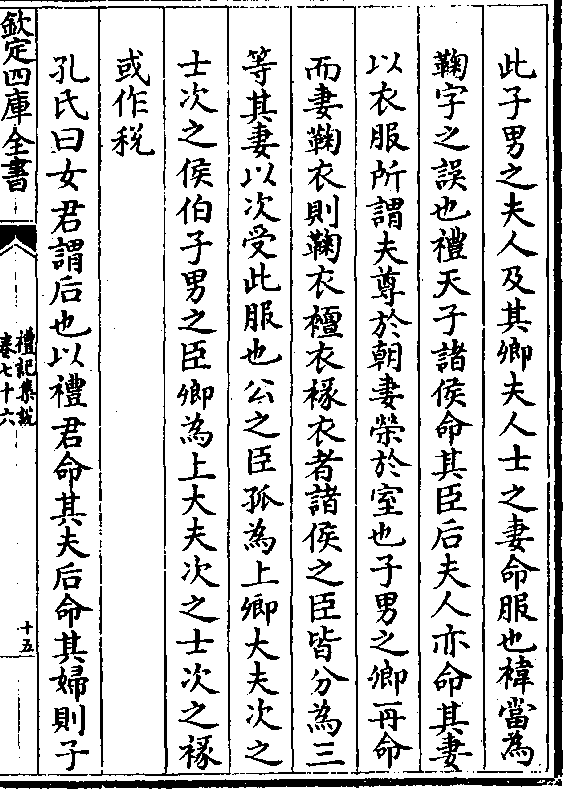 此子男之夫人及其卿夫人士之妻命服也褘當為
鞠字之誤也禮天子諸侯命其臣后夫人亦命其妻
以衣服所謂夫尊於朝妻榮於室也子男之卿再命
而妻鞠衣則鞠衣襢衣褖衣者諸侯之臣皆分為三
等其妻以次受此服也公之臣孤為上卿大夫次之
士次之侯伯子男之臣卿為上大夫次之士次之褖
或作税
孔氏曰女君謂后也以禮君命其夫后命其婦則子
欽定四庫全書
禮記集説
卷七十六
十五